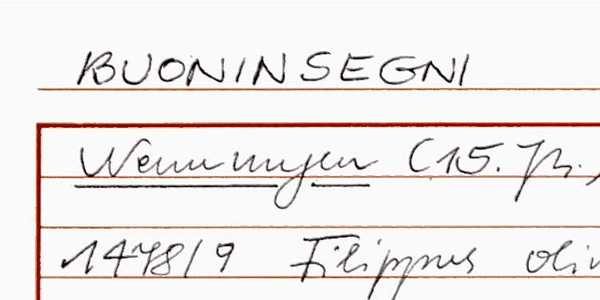 BUONINSEGNI
Nennungen (15. Jh.)
1478/9 Filippus